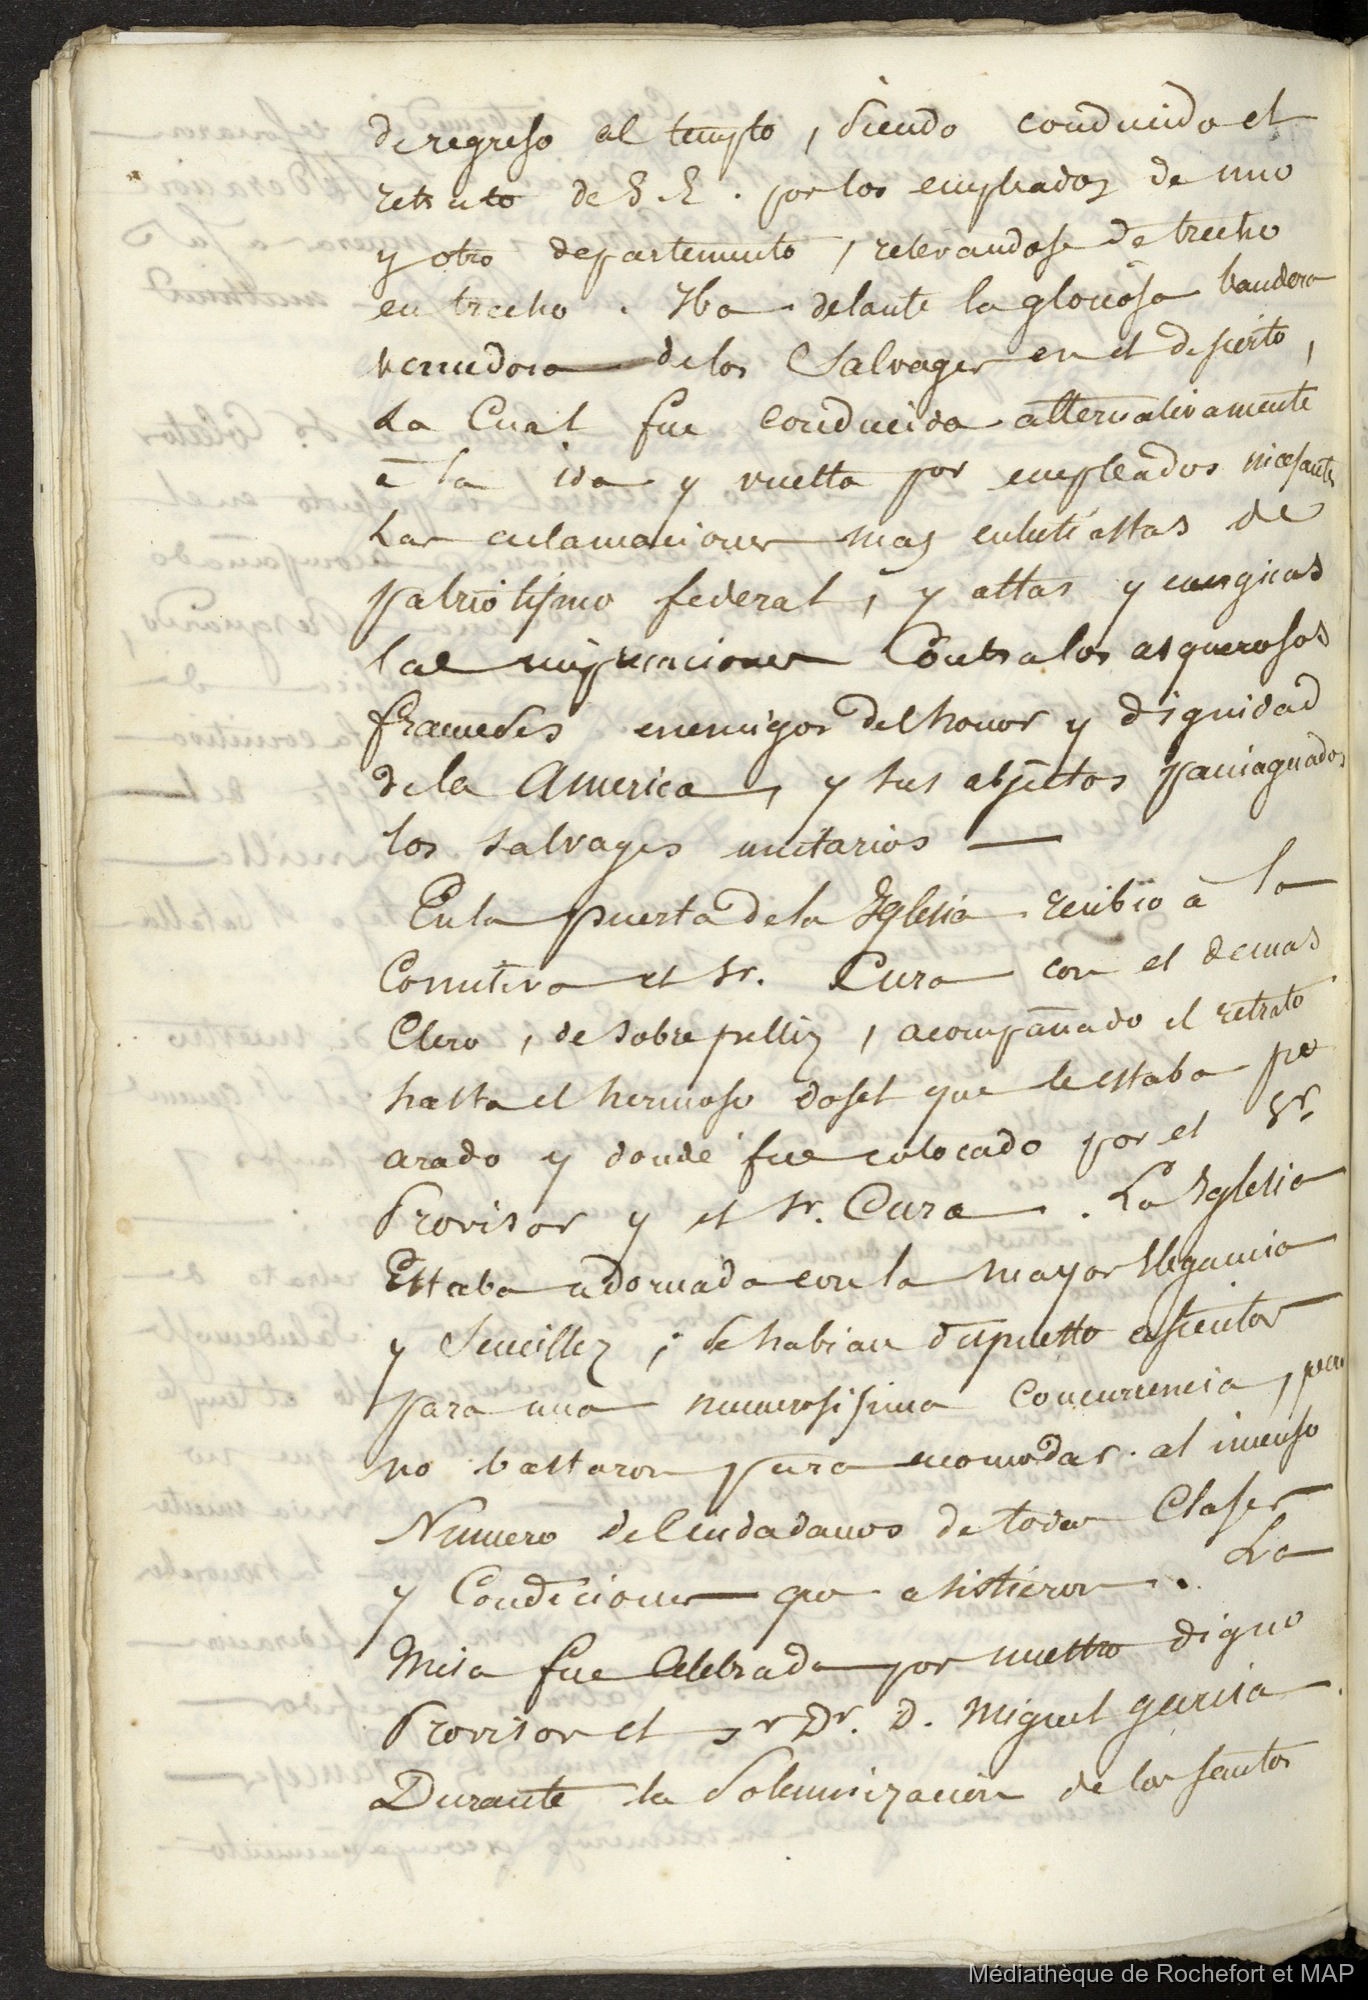 de regreso al templo, Siendo conducido el
retrato de S. E. por los empleados de uno
y otro departemento, relevandose de trecho
en trecho. Iba delante la gloriosa bandera
vencedora de los Salvages en el desierto,
La Cual fue conducida alternativamente
á la ida y vuelta por empleados
Las aclamaciones mas de
patriotismo federal, y altas y energicas
las contra los asquerosos
franceses enemigos del honor y dignidad
de la America, y sus abjectos paniaguados
los salvages unitarios —
En la puerta de la Iglesia recibio á la
Comitiva el Sr. Cura con el demas
Clero, de sobrepelliz, acompañado el retrato
hasta el hermoso dosel que le estaba pre
arado y donde fue colocado por el Sr
Provisor y el Sr. Cura. La Iglesia
Estaba adornada con la mayor Elegancia
y Sencillez; se habian dispuesto asientos
para una numerosisima concurrencia, pero
no bastaron para acomodar al inmenso
Numero de Ciudadanos de todas Clases
y Condiciones que asistieron. La
Misa fue Celebrada por nuestro digno
Provisor el Sr Dr. D. Miguel Garcia.
Durante la Solemnizacion de los santos
Médiathèque de Rochefort et MAP